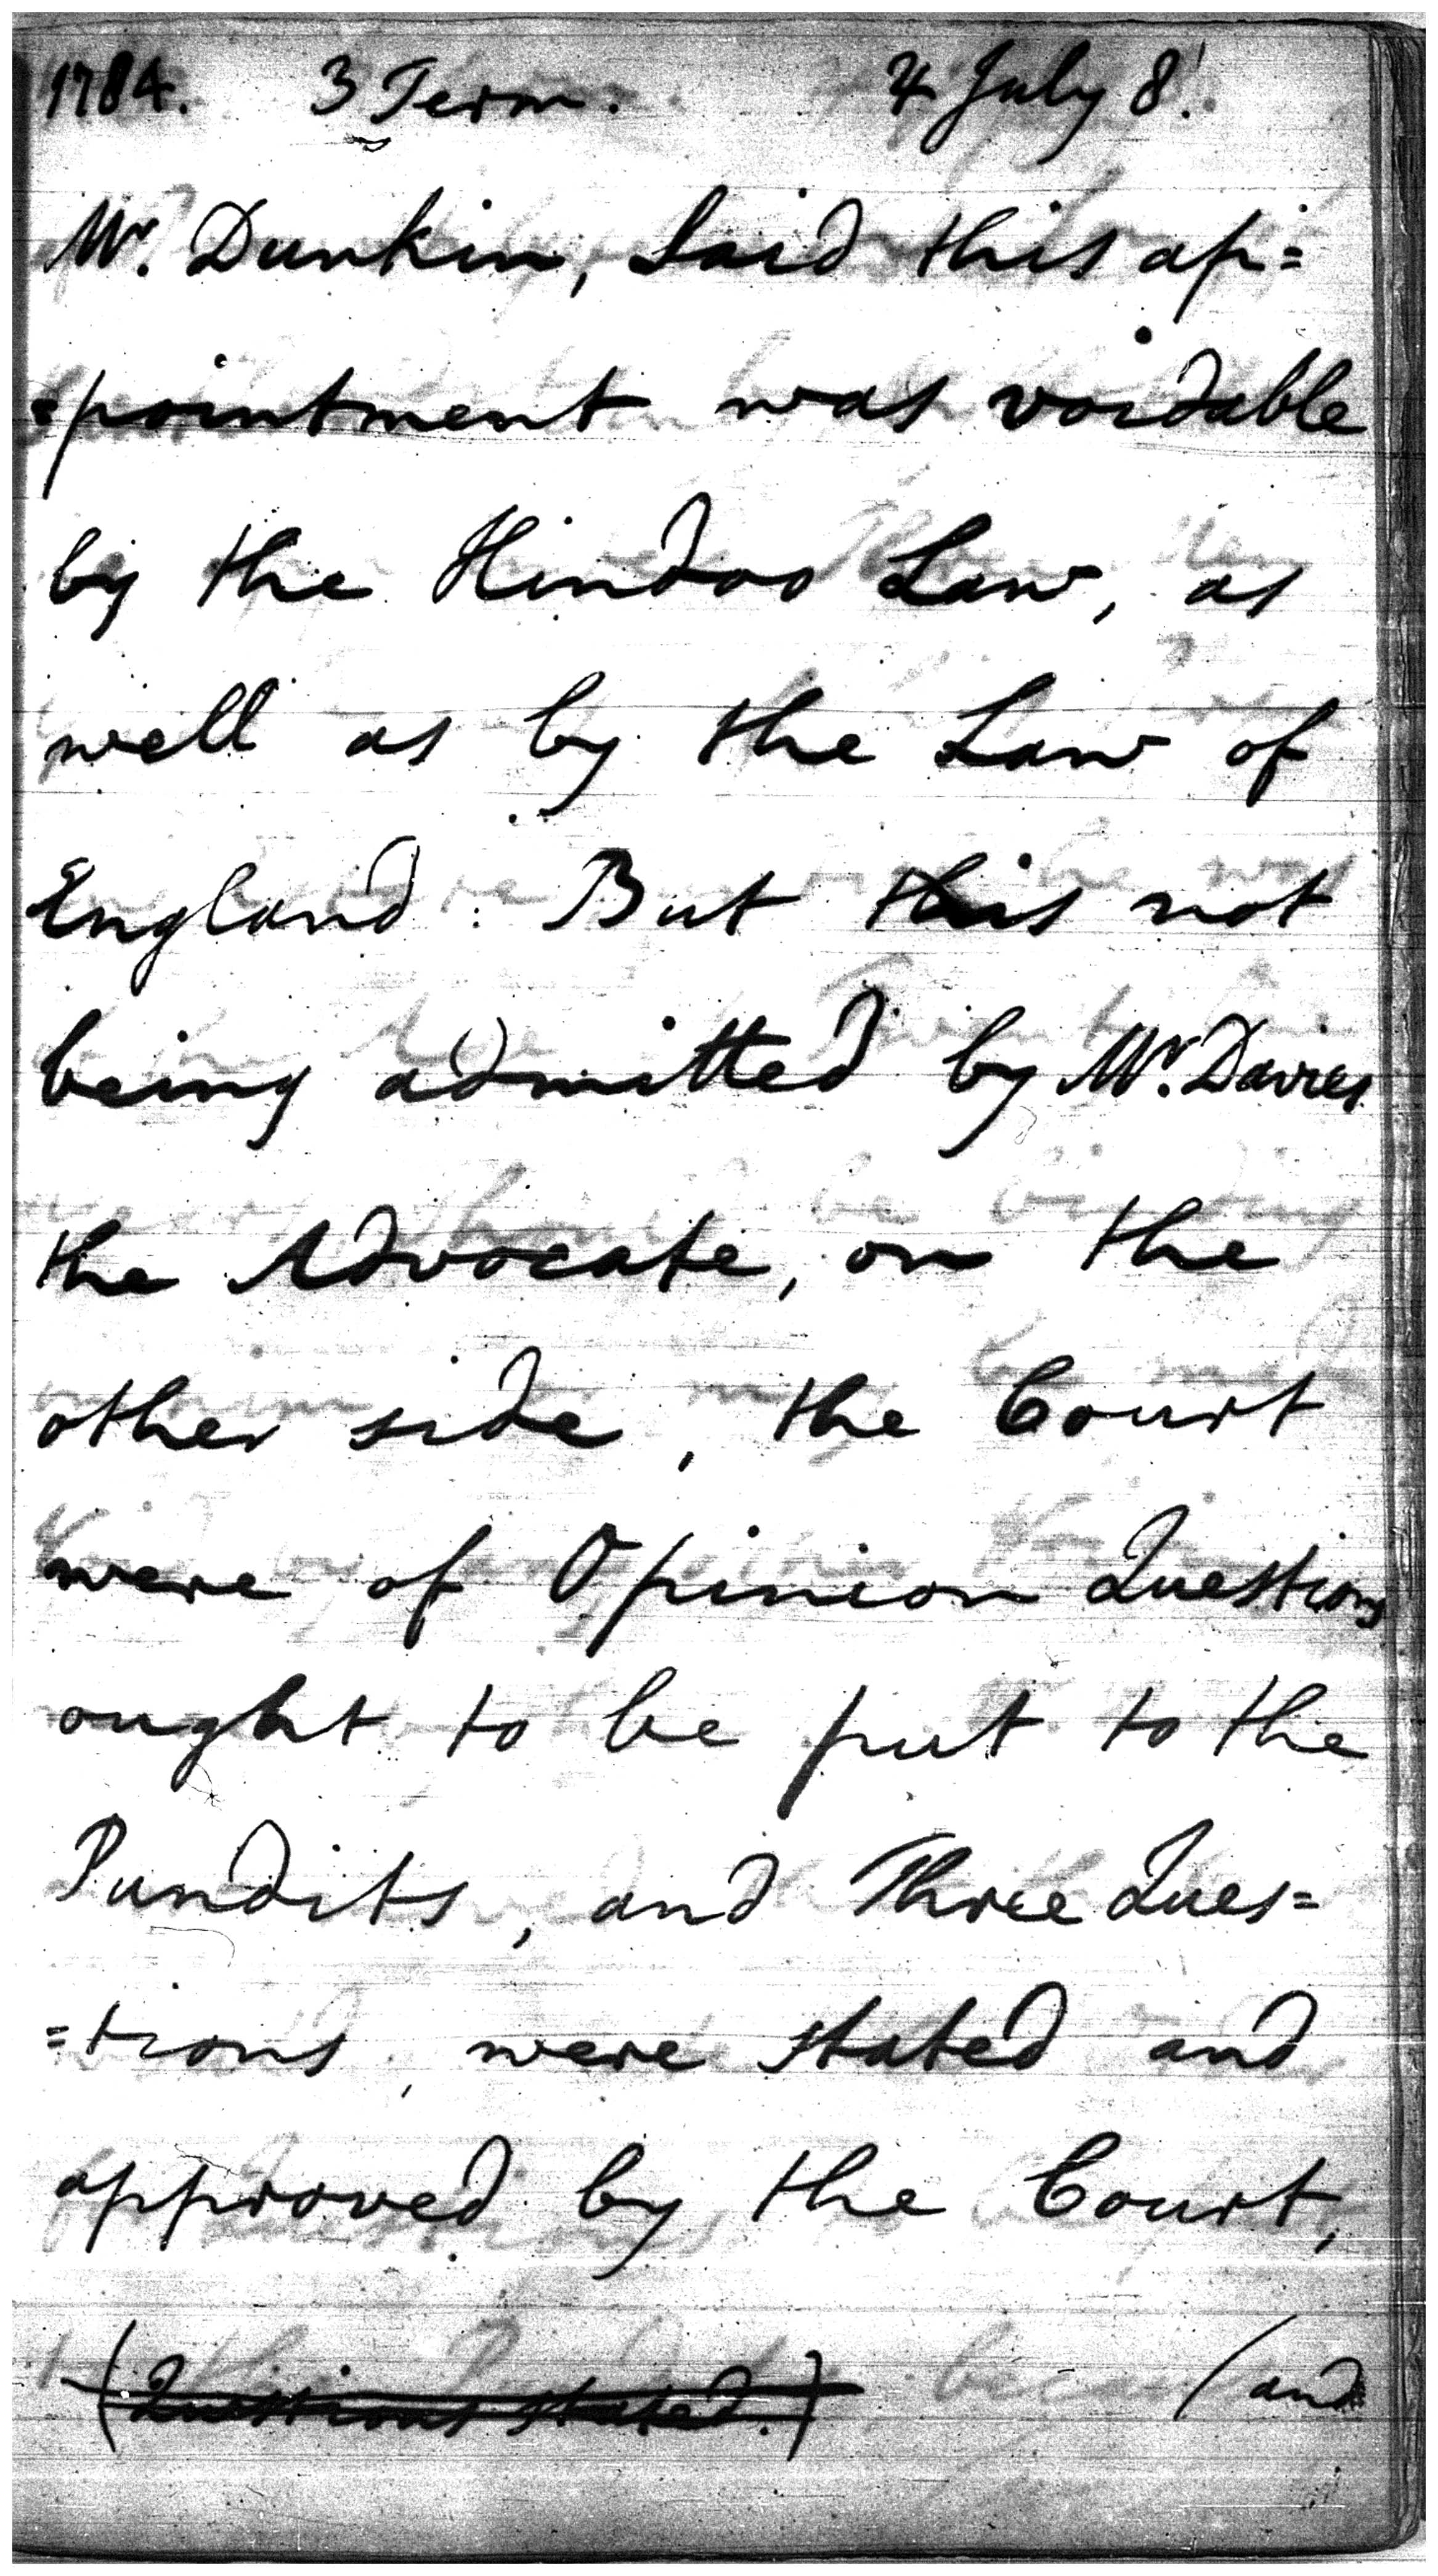 1784. 3 Term. 4 July 8.
Mr. Dunkin, said this ap=
=pointment was voidable
by the Hindoo Law, as
well as by the Law of
England: But this not
being admitted by Mr. Davies
the Advocate, on the
other side, the Court
were of Opinion Questions
ought to be put to the
Pundits, and Three Ques=
=tions, were stated and
approved by the Court,
(Questions stated.) (and